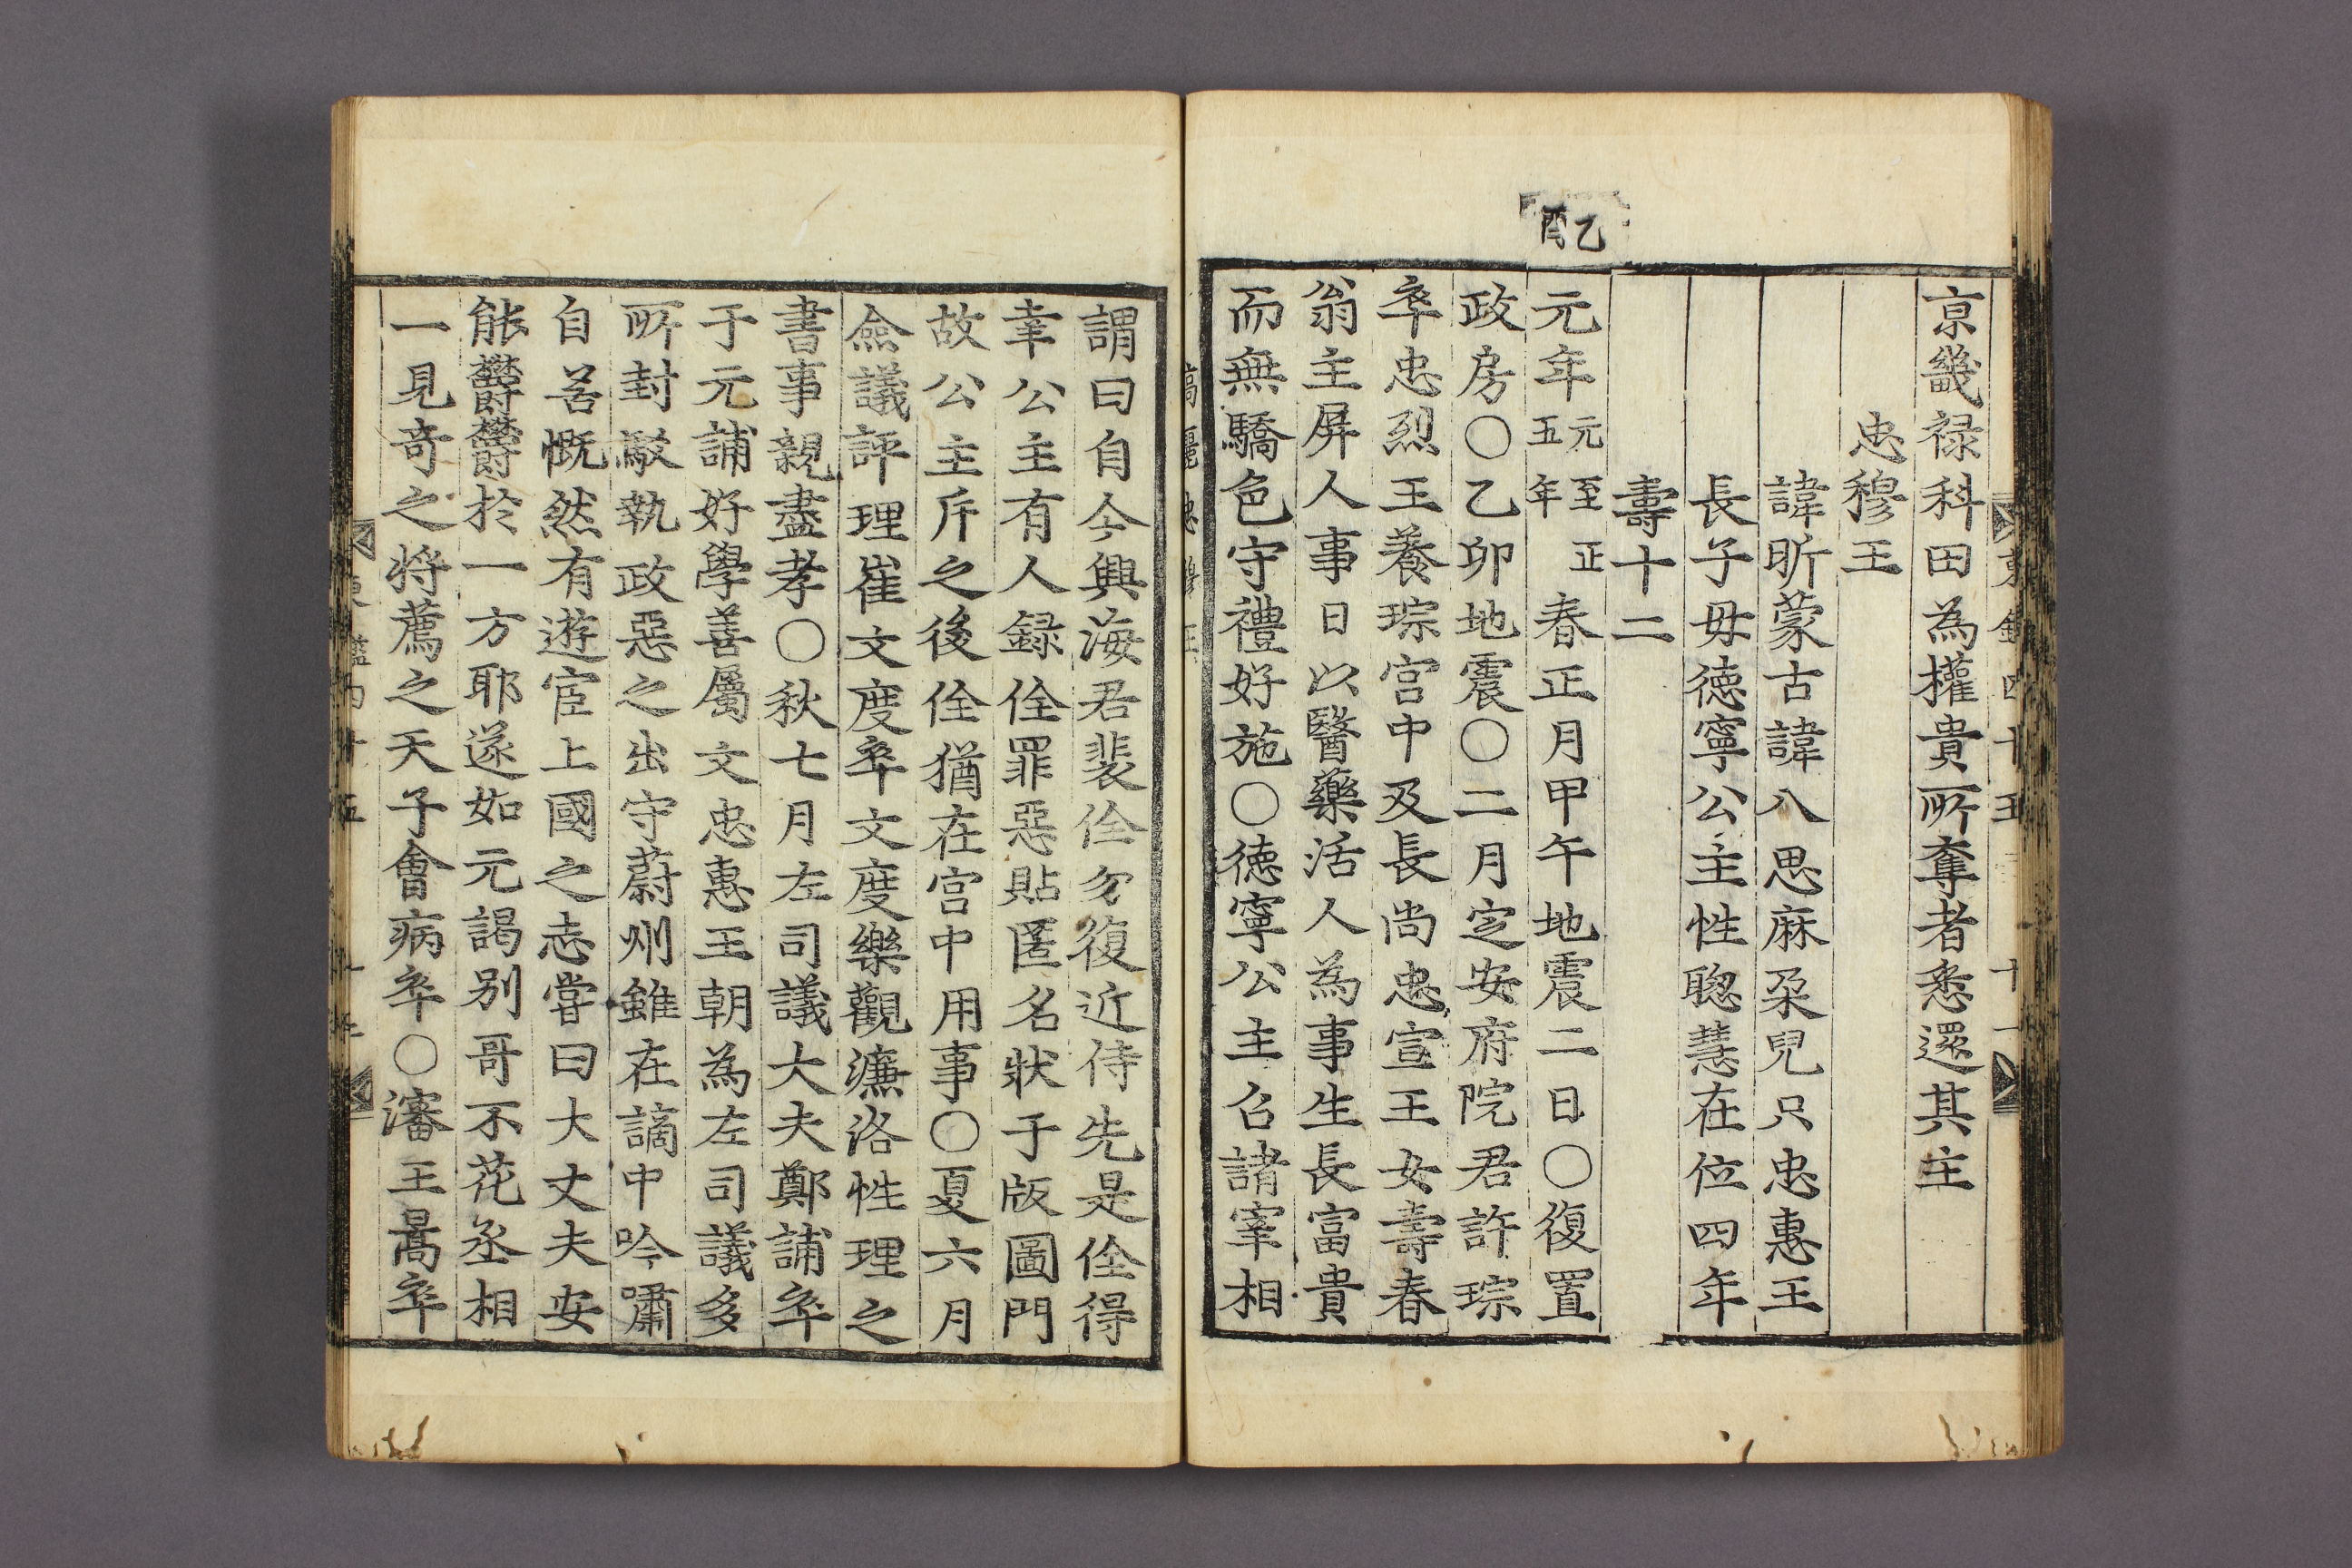 乙酉
京畿禄科田為權貴所奪者悉還其主
忠穆王
諱昕蒙古諱八思麻朶兒只忠惠王
長子毋徳寧公主性聦慧在位四年
壽十二
元年元至正五年春正月甲午地震二日○復置
政房○乙卯地震○二月定安府院君許琮
卒忠烈王養琮宫中及長尚忠宣王女壽春
翁主屏人事日以醫藥活人為事生長富貴
而無驕色守禮好施○徳寧公主召諸宰相
謂曰自今興海君裴佺勿復近侍先是佺得
幸公主有人録佺罪惡貼匿名狀于版圖門
故公主斥之後佺猶在宫中用事○夏六月
僉議評理崔文度卒文度樂觀濂洛性理之
書事親盡孝○秋七月左司議大夫鄭誧卒
于元誧好學善屬文忠惠王朝為左司議多
所封駁執政惡之出守蔚州雖在謫中吟嘯
自若慨然有遊宦上國之志嘗曰大丈夫安
能欝欝於一方耶遂如元謁别哥不花丞相
一見奇之将薦之天子會病卒○瀋王暠卒